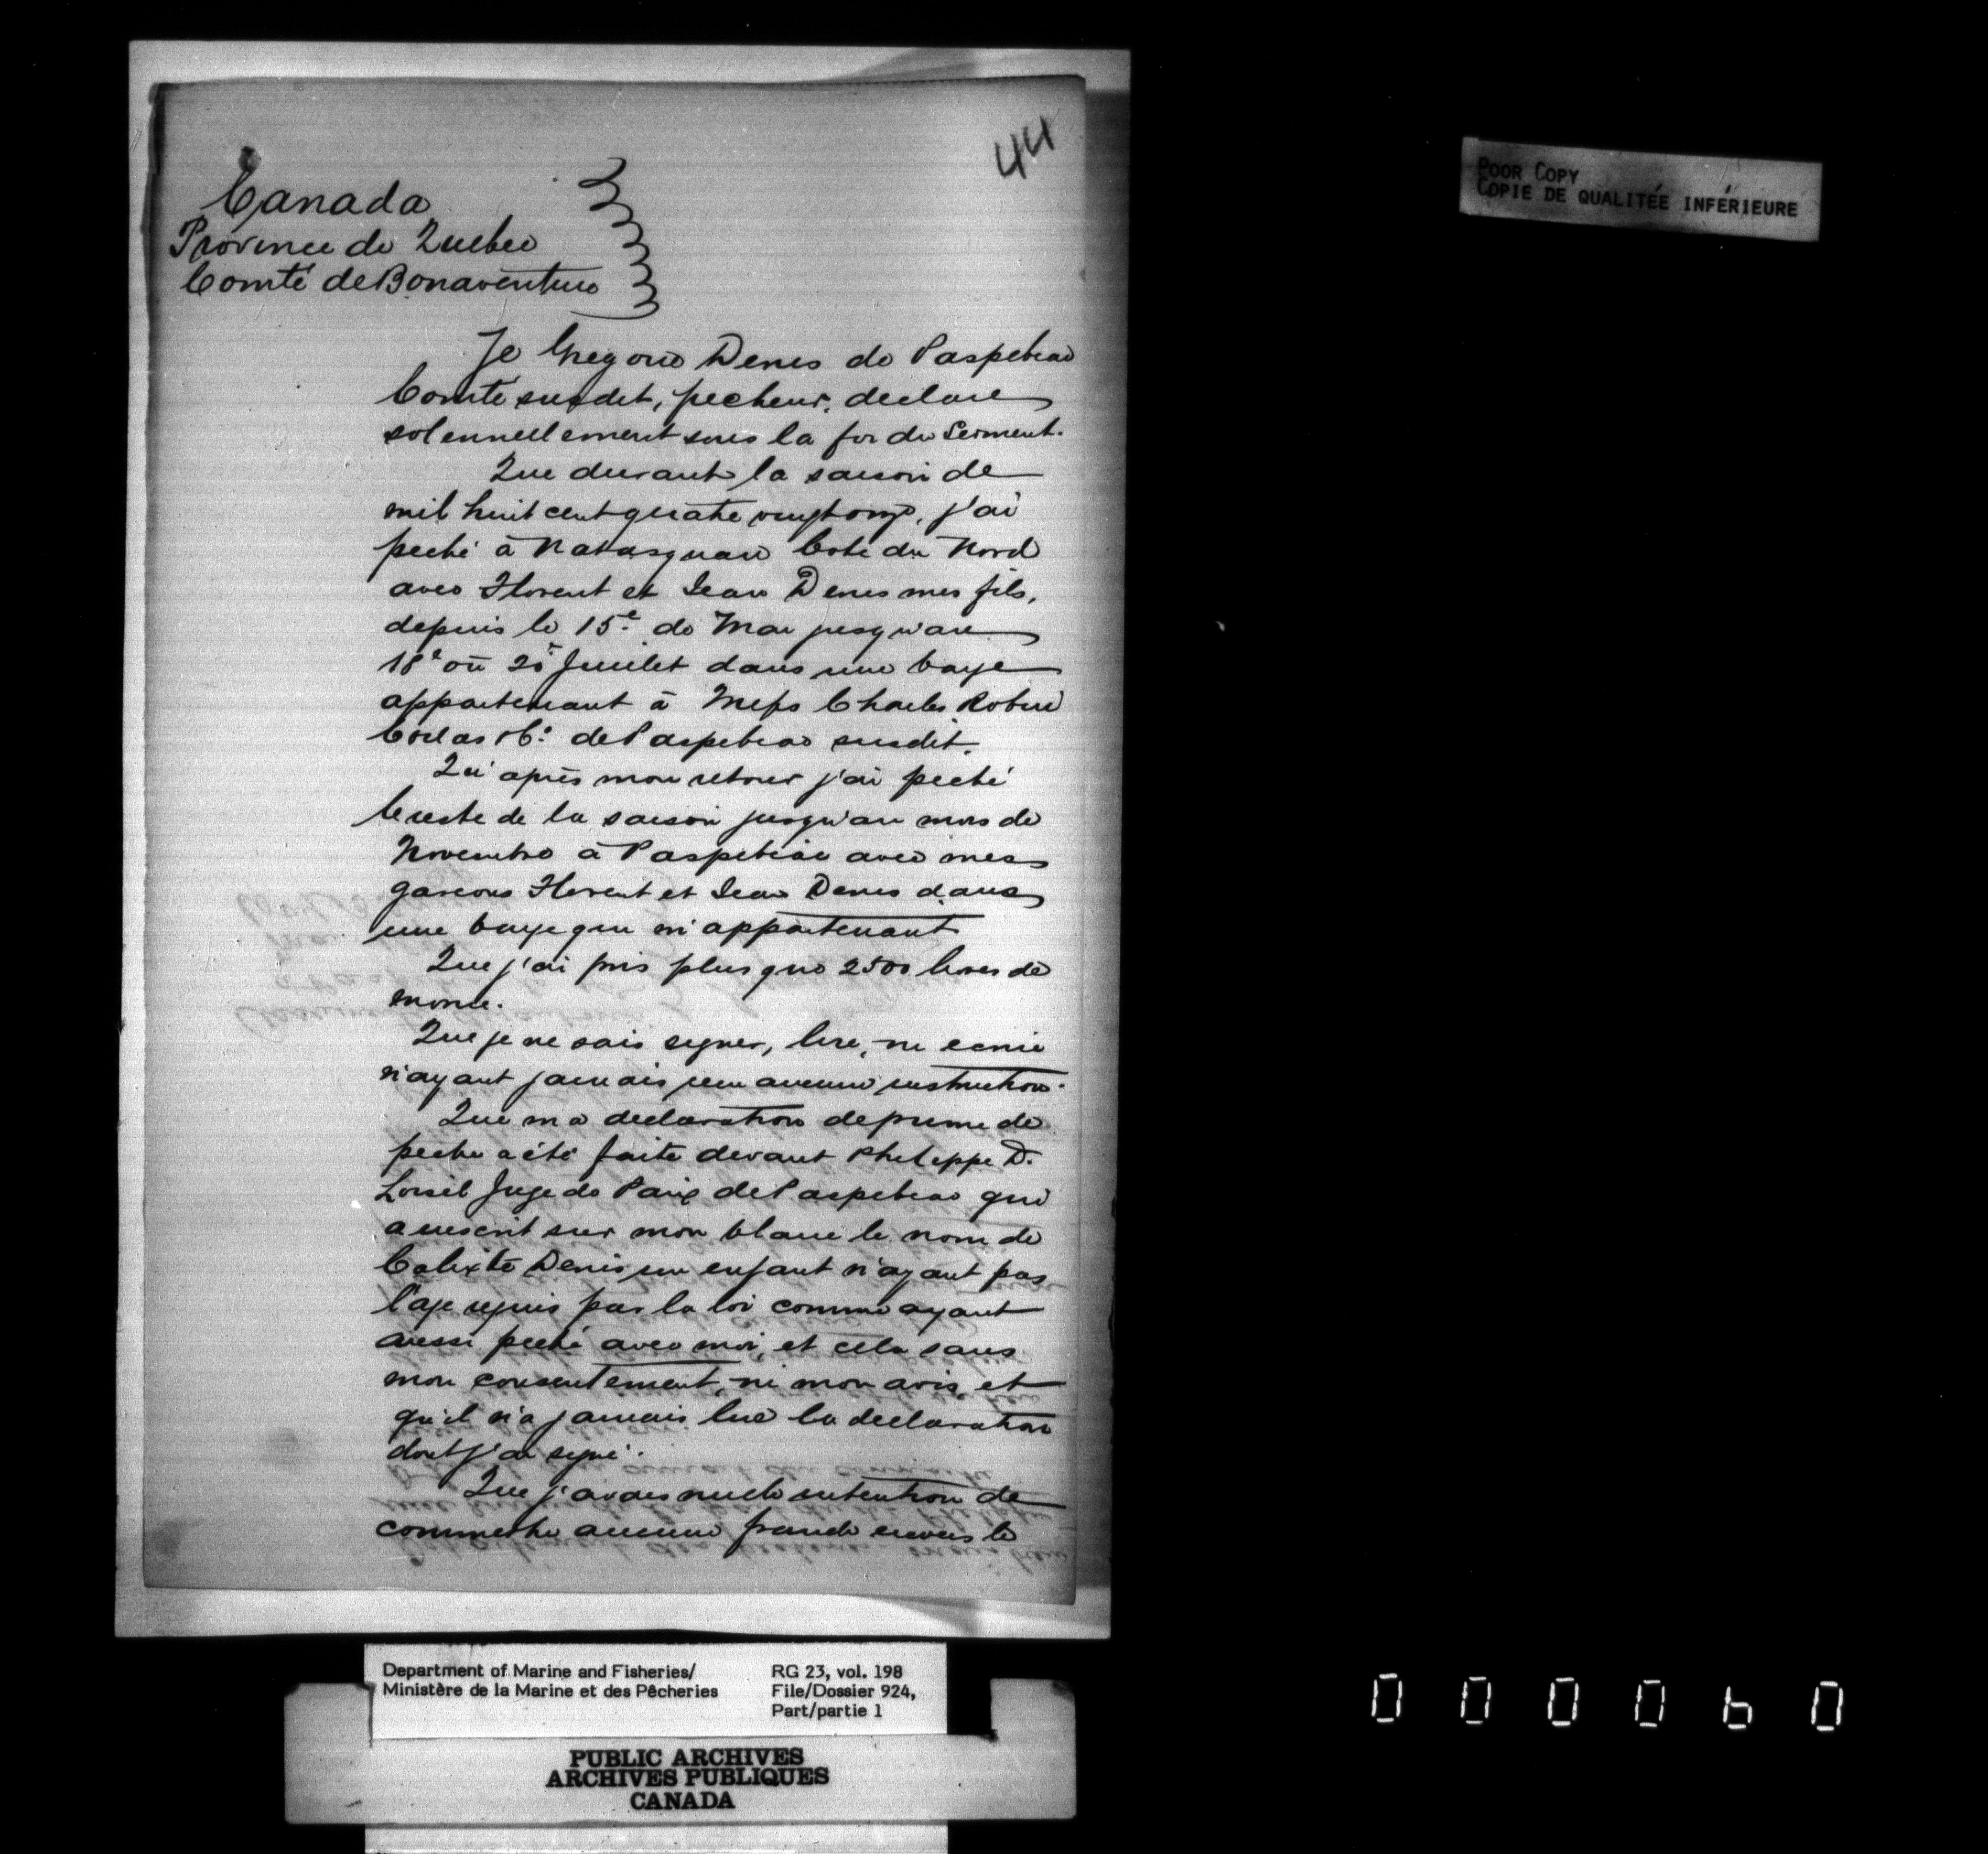 44
POOR COPY
COPIE DE QUALITÉE INFÉRIEURE
Canada
Province de Quebec
Comté de Bonaventure
Je Gregoire Denis de Paspebiac
Comté susdit, pecheur, declare
solennellement sous la foi du Serment.
Que durant la saison de
mil huit cent quatre vingt onze, j'ai
peché à Natasquan Cote du Nord
avec Florent et Jean Denis mes fils,
depuis le 15e de Mai jusqu'au
18e ou 20e Juillet dans une barge
appartenant à Messs Charles Robin
Collas & Co. de Paspebiac susdit.
Qu'après mon retour j'ai peché
le reste de la saison jusqu'au mois de
Novembre à Paspebiac avec mes
garcons Florent et Jean Denis dans
une barge qui m'appartenant
Que j'ai pris plus que 2500 livres de
morue.
Que je ne sais signer, lire, ni ecrire
n'ayant jamais reçu aucune instruction.
Que ma declaration de prime de
peche a été faite devant Philippe D.
Loisel Juge de Paix de Paspebiac qui
a inscrit sur mon blanc le nom de
Calixte Denis un enfant n'ayant pas
l'age requis par la loi comme ayant
aussi peché avec moi, et cela sans
mon consentement, ni mon avis, et
qu'il n'a jamais lue la declaration
dont j'ai signé.
Que j'avais nulle intention de
commettre aucune fraude envers le
Department of Marine and Fisheries/
Ministère de la Marine et des Pêcheries
RG 23, vol. 198
File/Dossier 924,
Part/partie 1
PUBLIC ARCHIVES
ARCHIVES PUBLIQUES
CANADA
000060